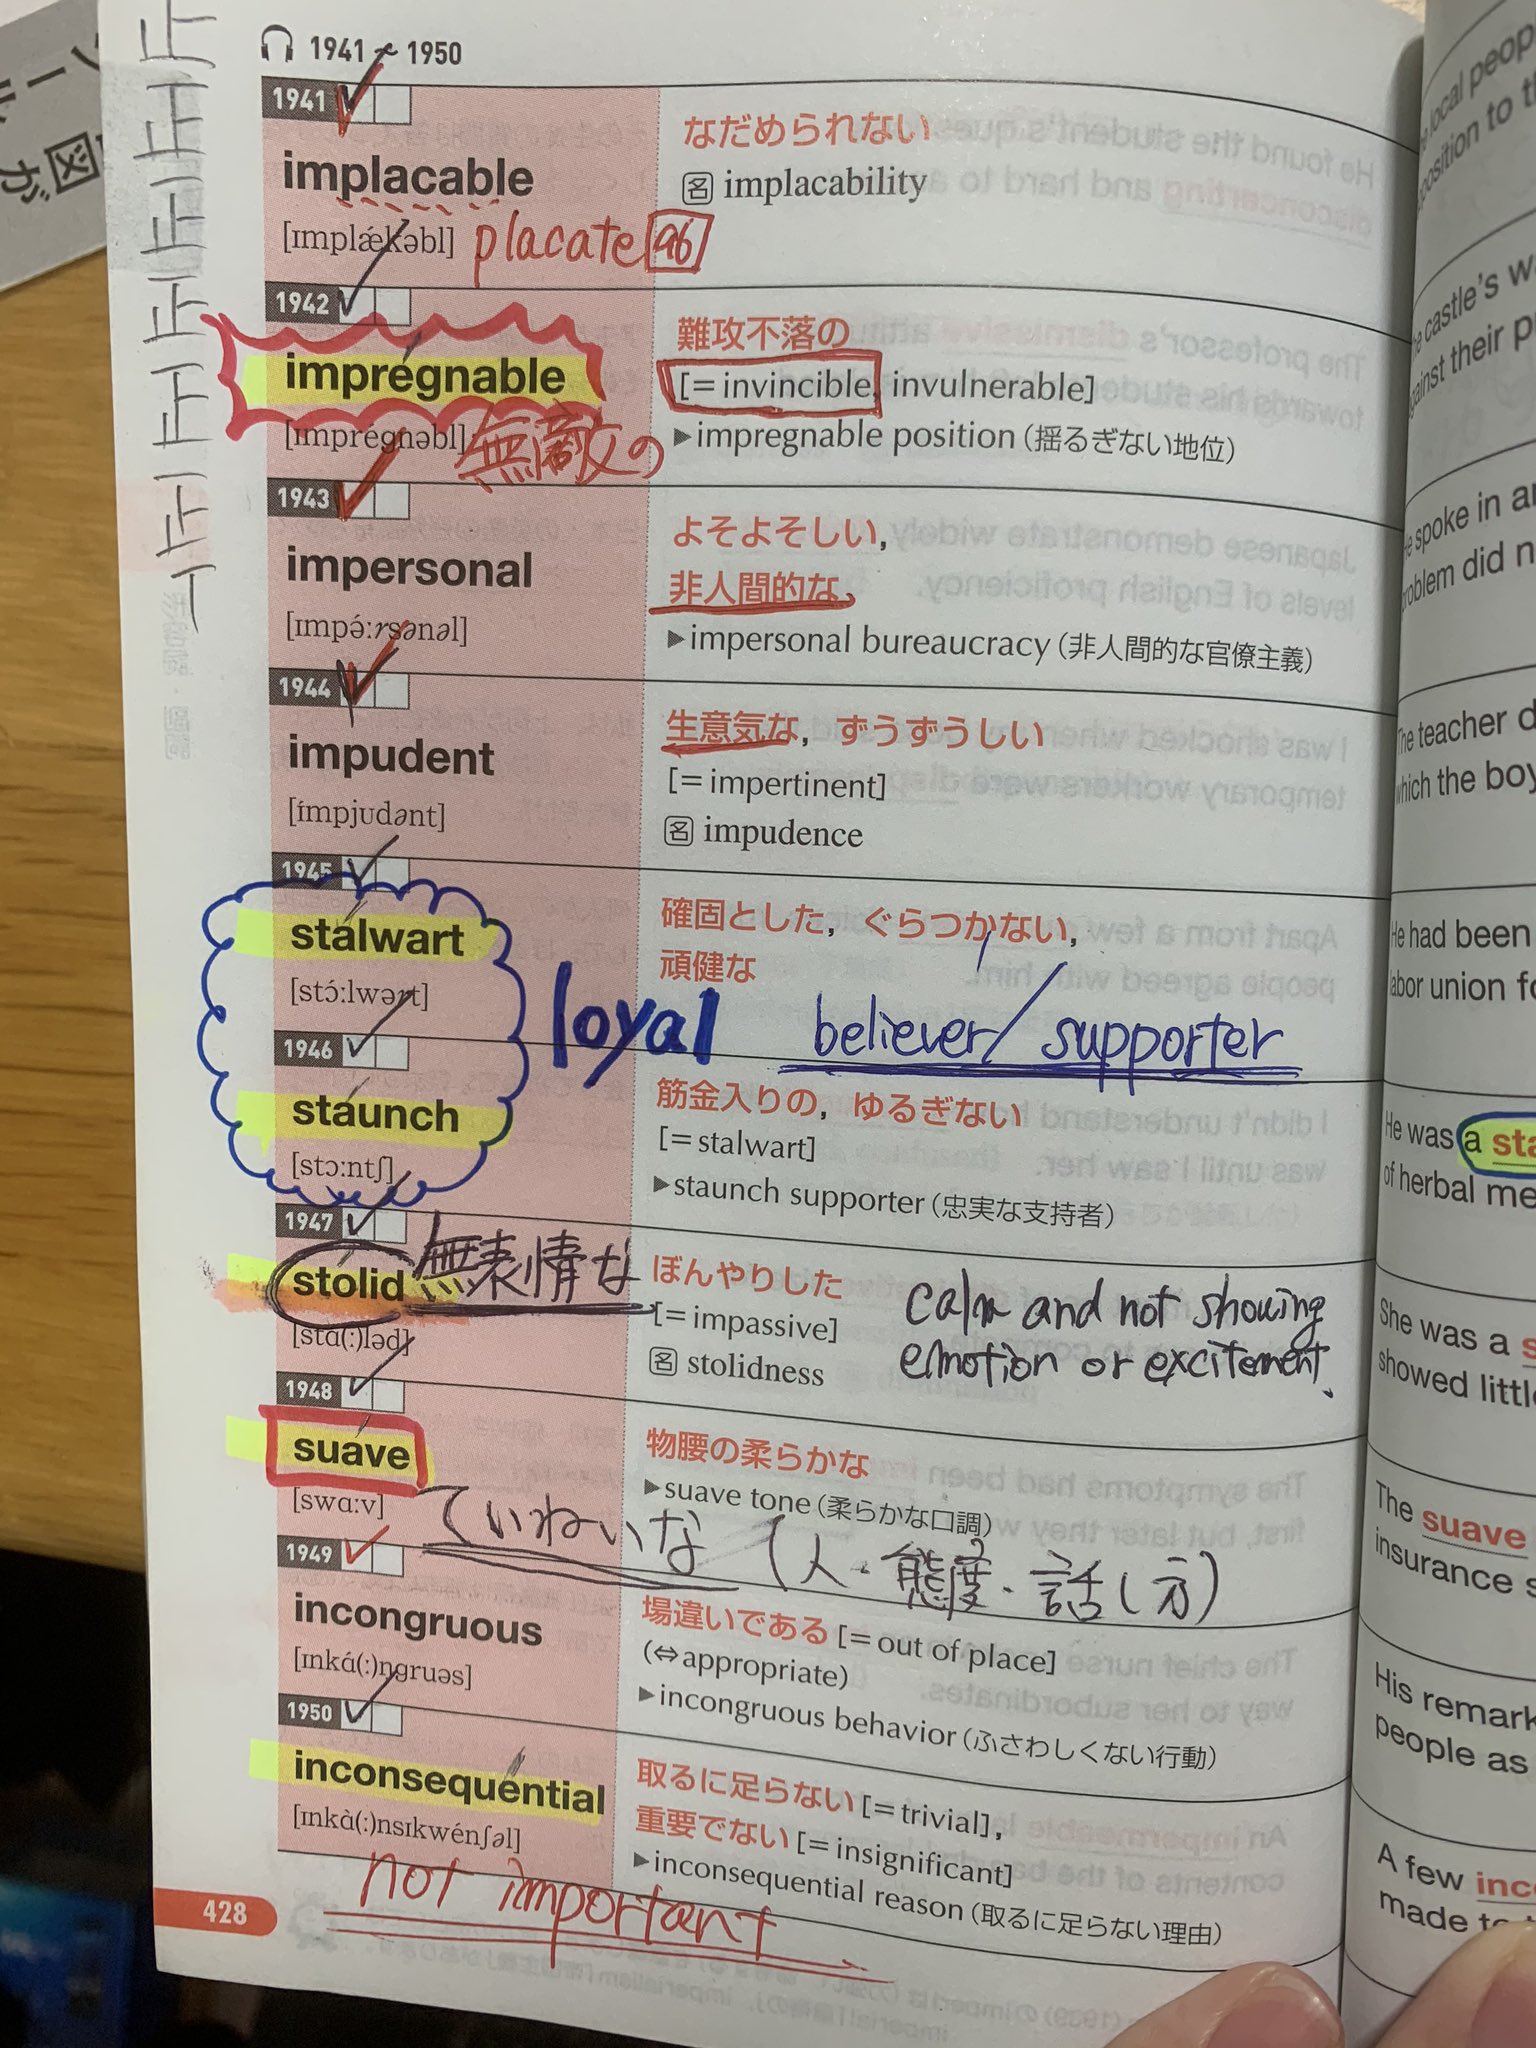 1941 ~ 1950
1941
implacable
[ɪmplǽkəbl]
placate 96
なだめられない
名 implacability
1942
impregnable
[ɪmprégnəbl]
無敵の
難攻不落の
[= invincible, invulnerable]
▶impregnable position (揺るぎない地位)
1943
impersonal
[ɪmpə́ːrsənəl]
よそよそしい,
非人間的な
▶impersonal bureaucracy (非人間的な官僚主義)
1944
impudent
[ímpjʊdənt]
生意気な, ずうずうしい
[= impertinent]
名 impudence
1945
stalwart
[stɔ́ːlwərt]
確固とした, ぐらつかない,
頑健な
loyal
believer/supporter
1946
staunch
[stɔːntʃ]
筋金入りの, ゆるぎない
[= stalwart]
▶staunch supporter (忠実な支持者)
1947
stolid
無表情な
[stɑ(ː)ləd]
ぼんやりした
[= impassive]
名 stolidness
calm and not showing
emotion or excitement.
1948
suave
[swɑːv]
物腰の柔らかな
▶suave tone (柔らかな口調)
ていねいな (人・態度・話し方)
1949
incongruous
[ɪnkɑ́(ː)ŋgruəs]
場違いである [= out of place]
(⇔appropriate)
▶incongruous behavior (ふさわしくない行動)
1950
inconsequential
[ɪnkɑ̀(ː)nsɪkwénʃəl]
取るに足らない [= trivial],
重要でない [= insignificant]
▶inconsequential reason (取るに足らない理由)
not important
428
正
正
正
正
正
正
local people
position to
castle's
against their
spoke in
problem did
The teacher
which the boy
He had been
labor union
He was a
of herbal
She was a
showed
The suave
insurance
His remark
people as
A few
made
図
が